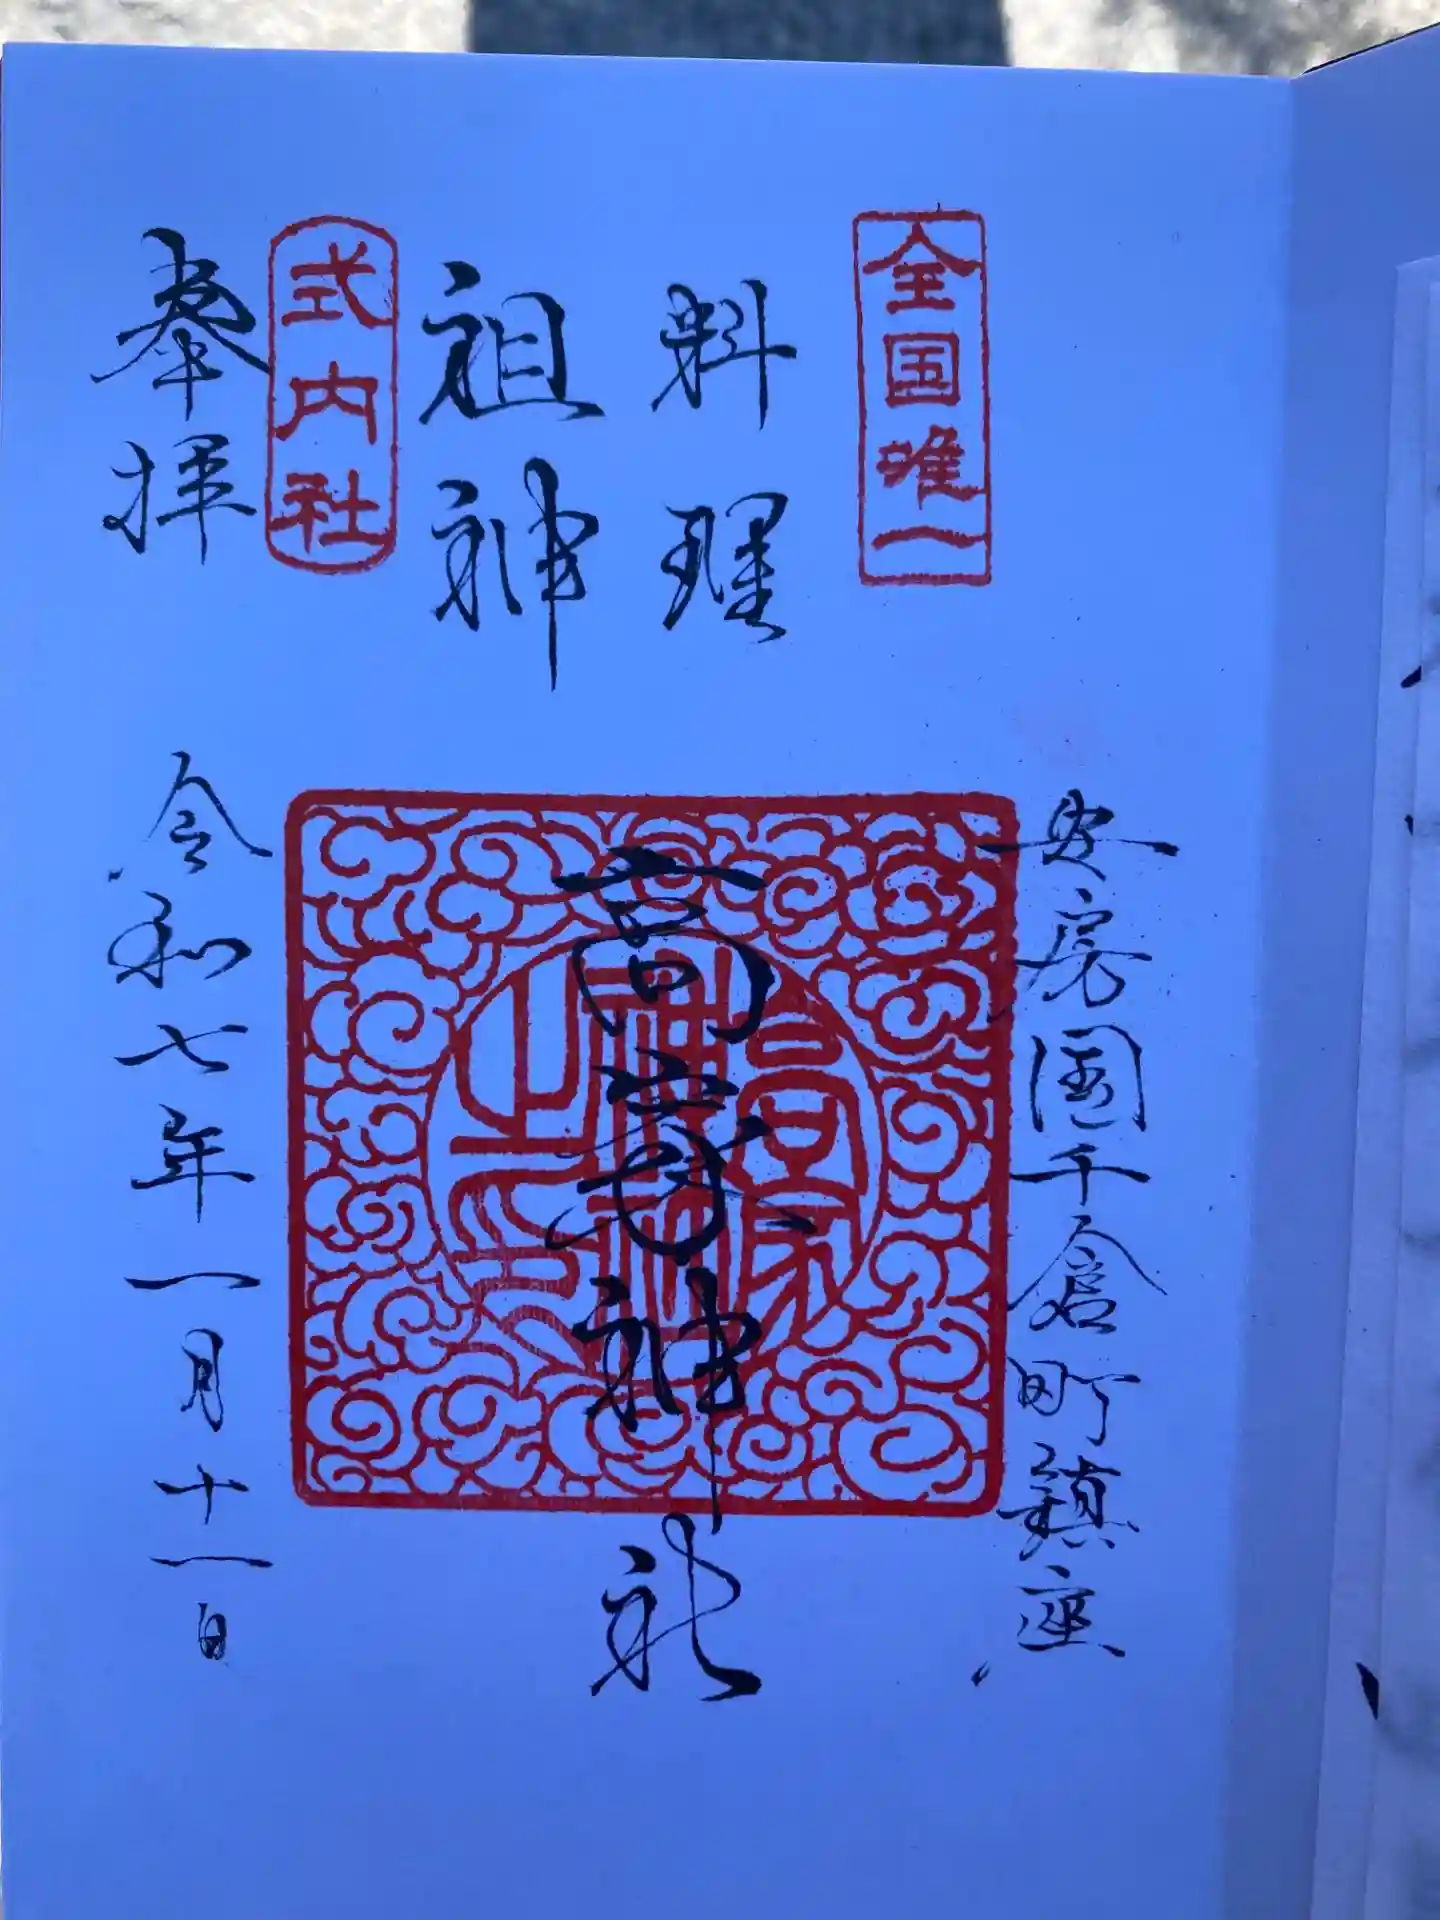 全国唯一
料理
祖神
式内社
奉拝
安房国千倉町鎮座
高家神社
令和七年一月十一日